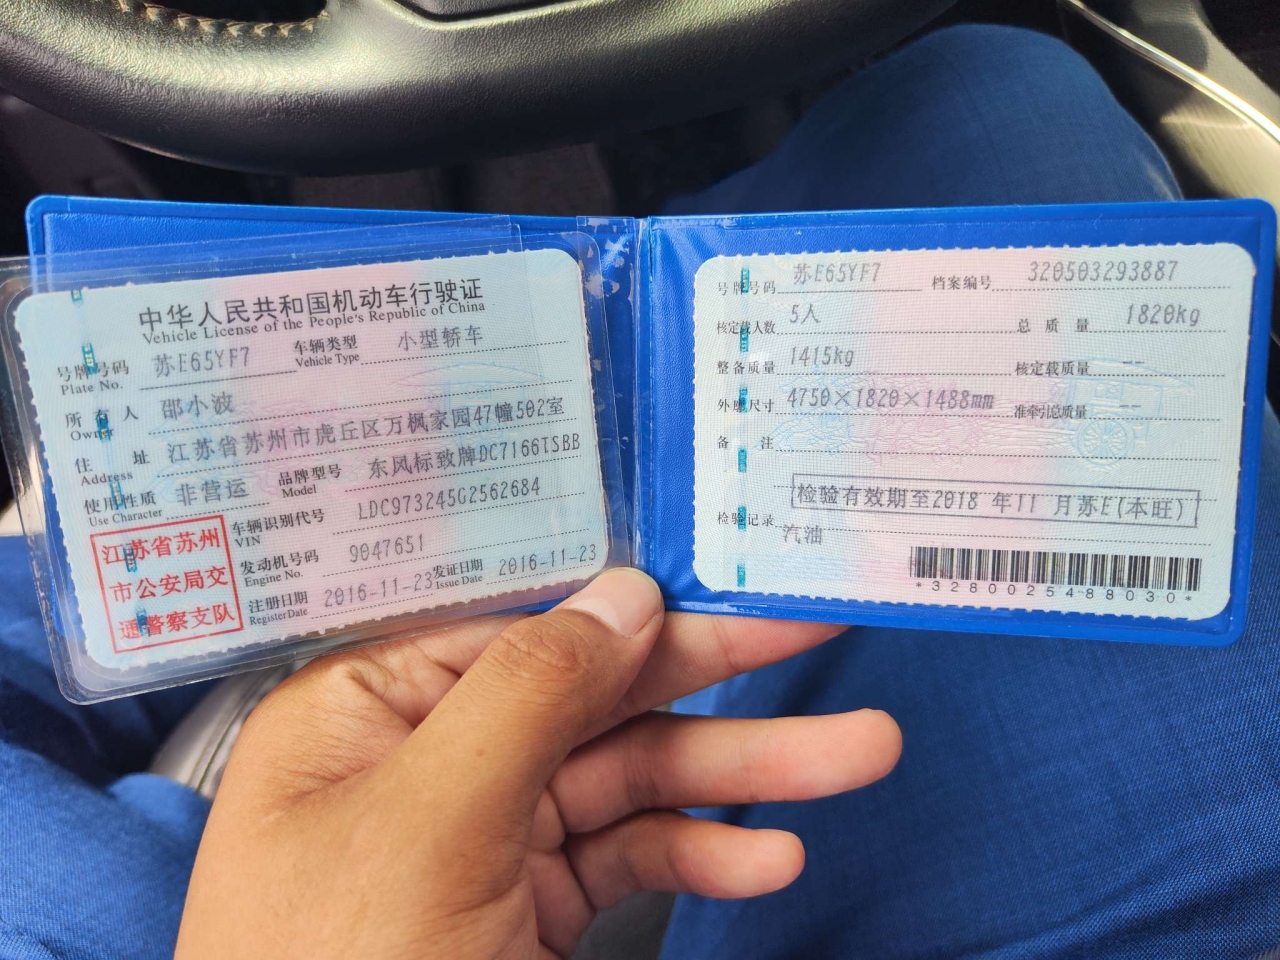 中华人民共和国机动车行驶证
Vehicle License of the People's Republic of China
号牌号码 Plate No. 苏E65YF7 车辆类型 Vehicle Type 小型轿车
所有人 Owner 邵小波
住址 Address 江苏省苏州市虎丘区万枫家园47幢502室
使用性质 Use Character 非营运 品牌型号 Model 东风标致牌DC7166TSBB
车辆识别代号 VIN LDC973245G2562684
发动机号码 Engine No. 9047651
注册日期 Register Date 2016-11-23 发证日期 Issue Date 2016-11-23
江苏省苏州
市公安局交
通警察支队
号牌号码 苏E65YF7 档案编号 320503293887
核定载人数 5人 总质量 1820kg
整备质量 1415kg 核定载质量 --
外廓尺寸 4750×1820×1488mm 准牵引总质量 --
备注
检验有效期至2018 年11 月苏E(本旺)
检验记录
汽油
*3280025488030*